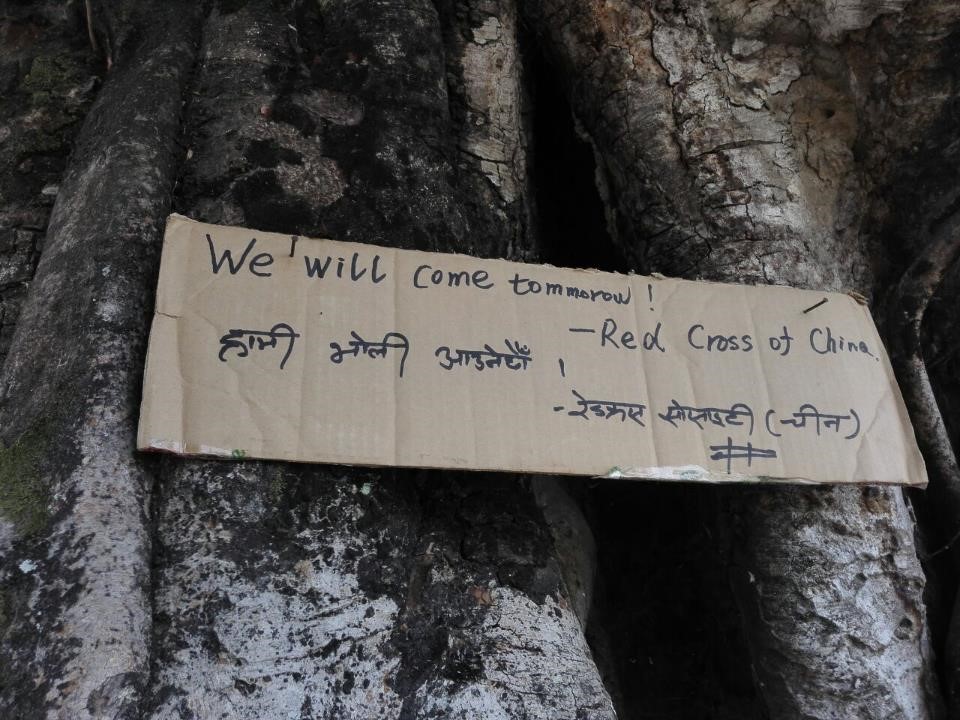 We will come tommorow !
-Red Cross of China.
हामी भोली आउनेछौँ ।
-रेडक्रस सोसाइटी (चीन)